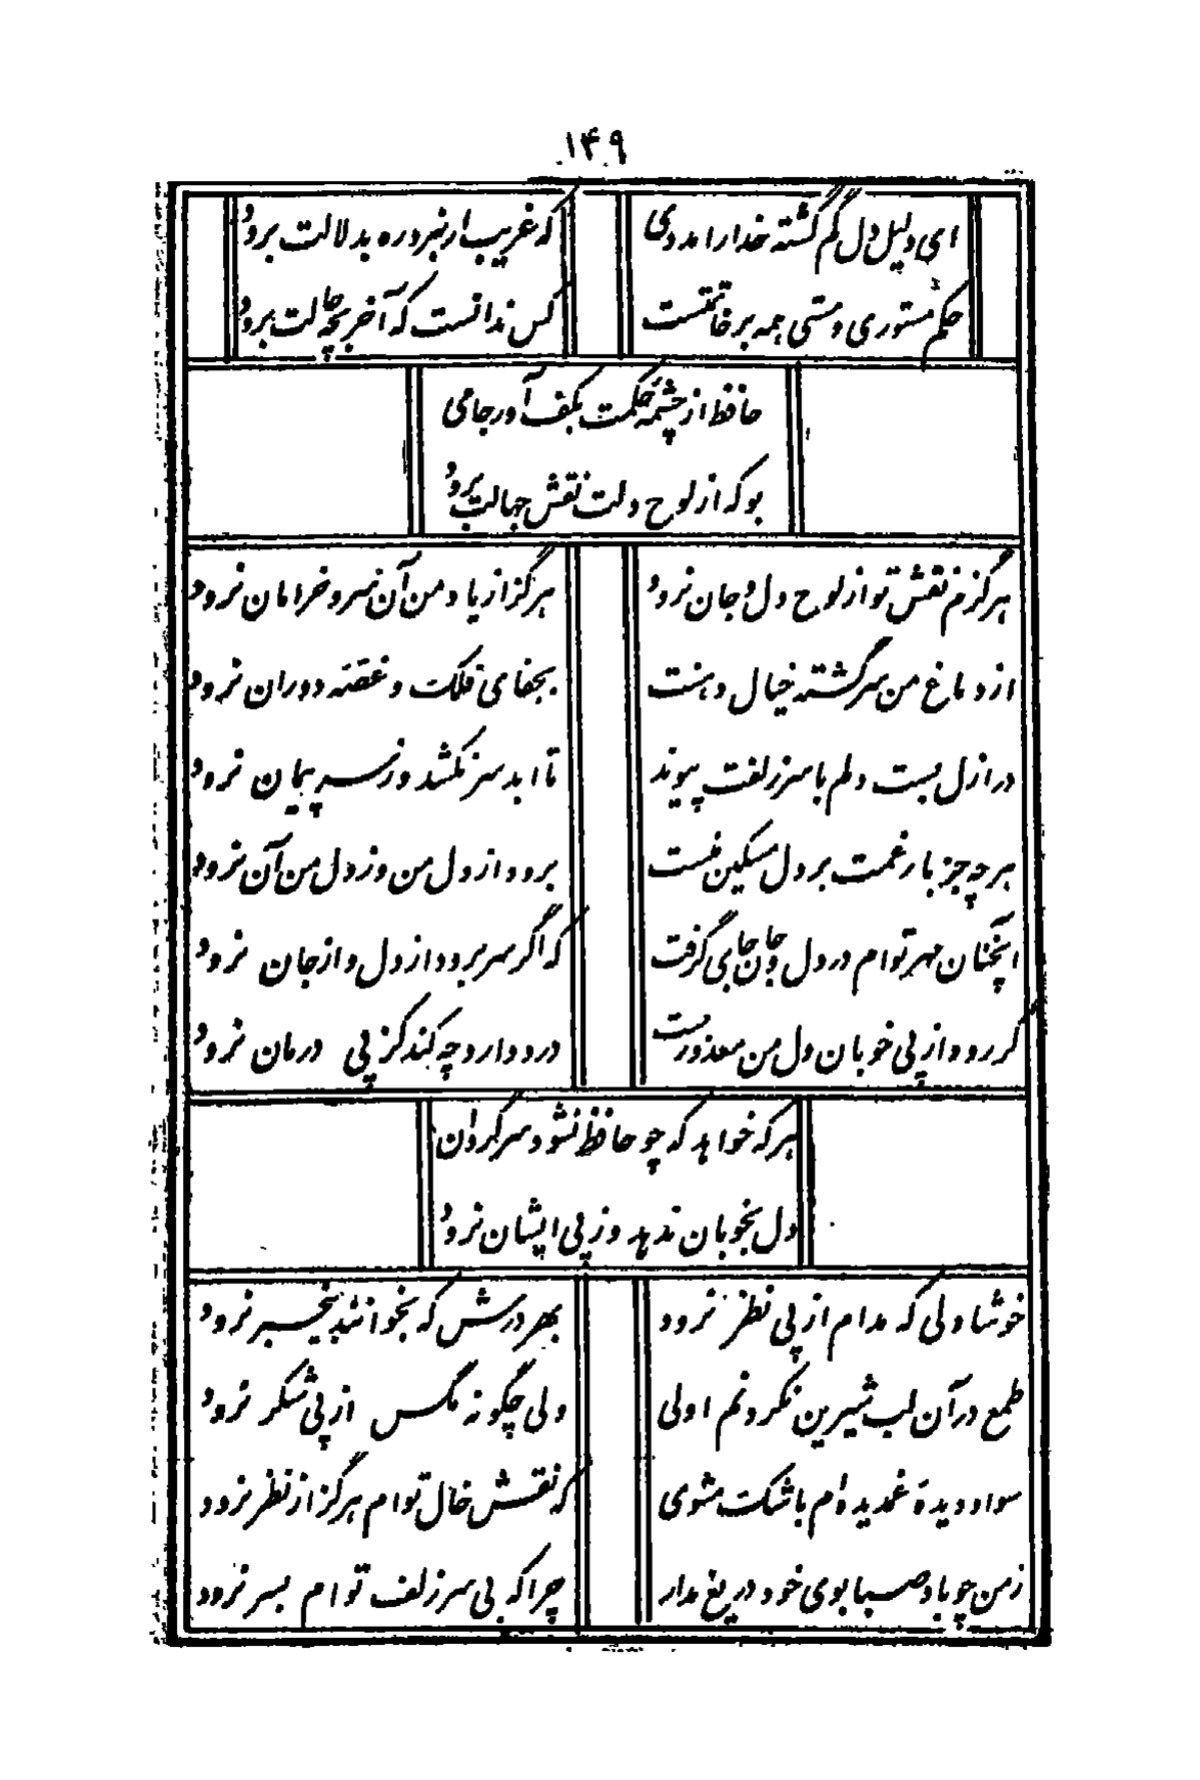 ۱۴۹
ای دلیل دل گم گشته خدا را مددی
که غریب ار نبرد ره بدلالت برود
حکم مستوری و مستی همه بر خاتمتست
کس ندانست که آخر بچه حالت برود
حافظ از چشمهٔ حکمت بکف آور جامی
بو که از لوح دلت نقش جهالت برود
هرگزم نقش تو از لوح دل و جان نرود
هرگز از یاد من آن سرو خرامان نرود
از دماغ من سرگشته خیال دهنت
بجفای فلک و غصّه دوران نرود
در ازل بست دلم با سر زلفت پیوند
تا ابد سر نکشد وز سر پیمان نرود
هر چه جز بار غمت بر دل مسکین منست
برود از دل من وز دل من آن نرود
آنچنان مهر توام در دل و جان جای گرفت
که اگر سر برود از دل و از جان نرود
گر رود از پی خوبان دل من معذورست
درد دارد چه کند کز پی درمان نرود
هر که خواهد که چو حافظ نشود سرگردان
دل بخوبان ندهد وز پی ایشان نرود
خوشا دلی که مدام از پی نظر نرود
بهر درش که بخوانند بیخبر نرود
طمع در آن لب شیرین نکردنم اولی
ولی چگونه مگس از پی شکر نرود
سواد دیدهٔ غمدیده‌ام باشک مشوی
که نقش خال توام هرگز از نظر نرود
ز من چو باد صبا بوی خود دریغ مدار
چرا که بی سر زلف توام بسر نرود